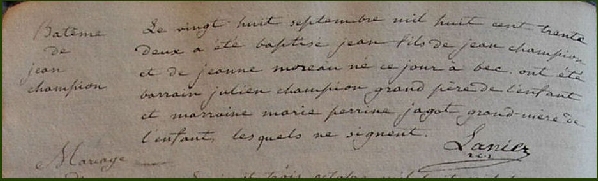 Batême
de
jean
champion
Le vingt huit septembre mil huit cent trente
deux a été baptisé jean fils de jean champion
et de jeanne moreau né ce jour à bec. ont été
parrain julien champion grand père de l'enfant
et marraine marie perrine jagot grand-mère de
l'enfant, lesquels ne signent.
Lanier
Mariage